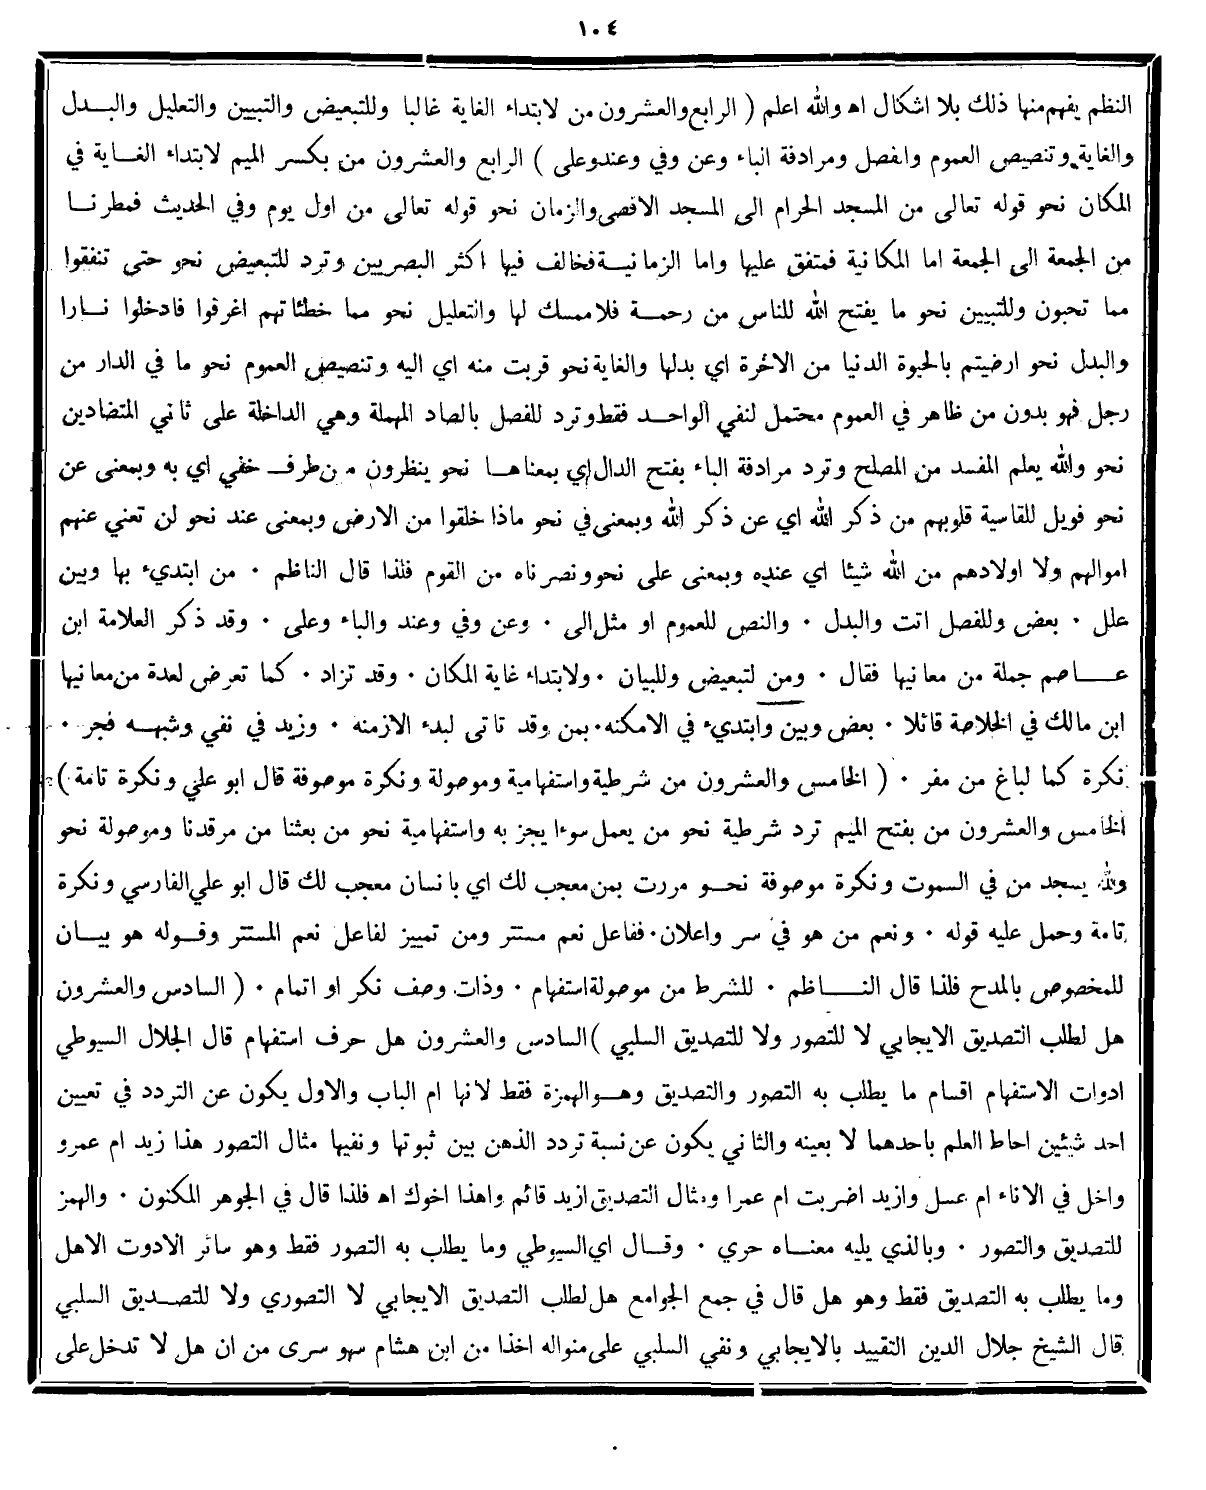 ١٠٤
النظم يفهم منها ذلك بلا اشكال اه والله اعلم ( الرابع والعشرون من لابتداء الغاية غالبا وللتبعيض والتبيين والتعليل والبـدل
والغاية وتنصيص العموم والفصل ومرادفة الباء وعن وفي وعند وعلى ) الرابع والعشرون من بكسر الميم لابتداء الغـاية في
المكان نحو قوله تعالى من المسجد الحرام الى المسجد الاقصى والزمان نحو قوله تعالى من اول يوم وفي الحديث فمطرنـا
من الجمعة الى الجمعة اما المكانية فمتفق عليها واما الزمانيـة فخالف فيها اكثر البصريين وترد للتبعيض نحو حتى تنفقوا
مما تحبون وللتبيين نحو ما يفتح الله للناس من رحمـة فلا ممسك لها والتعليل نحو مما خطئاتهم اغرقوا فادخلوا نـارا
والبدل نحو ارضيتم بالحيوة الدنيا من الاخرة اي بدلها والغاية نحو قربت منه اي اليه وتنصيص العموم نحو ما في الدار من
رجل فهو بدون من ظاهر في العموم محتمل لنفي الواحـد فقط وترد للفصل بالصاد المهملة وهي الداخلة على ثاني المتضادين
نحو والله يعلم المفسد من المصلح وترد مرادفة الباء بفتح الدال اي بمعناهـا نحو ينظرون من طرف خفي اي به وبمعنى عن
نحو فويل للقاسية قلوبهم من ذكر الله اي عن ذكر الله وبمعنى في نحو ماذا خلقوا من الارض وبمعنى عند نحو لن تغني عنهم
اموالهم ولا اولادهم من الله شيئا اي عنده وبمعنى على نحو ونصرناه من القوم فلذا قال الناظم ٠ من ابتديء بها وبين
علل ٠ بعض وللفصل اتت والبدل ٠ والنص للعموم او مثل الى ٠ وعن وفي وعند والباء وعلى ٠ وقد ذكر العلامة ابن
عـاصم جملة من معانيها فقال ٠ ومن لتبعيض وللبيان ٠ ولابتداء غاية المكان ٠ وقد تزاد ٠ كما تعرض لعدة من معانيها
ابن مالك في الخلاصة قائلا ٠ بعض وبين وابتديء في الامكنه ٠ بمن وقد تاتى لبدء الازمنه ٠ وزيد في نفي وشبهـه فجر ٠
نكرة كما لباغ من مفر ٠ ( الخامس والعشرون من شرطية واستفهامية وموصولة ونكرة موصوفة قال ابو علي ونكرة تامة )
الخامس والعشرون من بفتح الميم ترد شرطية نحو من يعمل سوءا يجز به واستفهامية نحو من بعثنا من مرقدنا وموصولة نحو
ولله يسجد من في السموت ونكرة موصوفة نحـو مررت بمن معجب لك اي بانسان معجب لك قال ابو علي الفارسي ونكرة
تامة وحمل عليه قوله ٠ ونعم من هو في سر واعلان ٠ ففاعل نعم مستتر ومن تمييز لفاعل نعم المستتر وقـوله هو بيـان
للمخصوص بالمدح فلذا قال النـاظم ٠ للشرط من موصولة استفهام ٠ وذات وصف نكر او اتمام ٠ ( السادس والعشرون
هل لطلب التصديق الايجابي لا للتصور ولا للتصديق السلبي ) السادس والعشرون هل حرف استفهام قال الجلال السيوطي
ادوات الاستفهام اقسام ما يطلب به التصور والتصديق وهـو الهمزة فقط لانها ام الباب والاول يكون عن التردد في تعيين
احد شيئين احاط العلم باحدهما لا بعينه والثاني يكون عن نسبة تردد الذهن بين ثبوتها ونفيها مثال التصور هذا زيد ام عمرو
واخل في الاناء ام عسل وازيد اضربت ام عمرا ومثال التصديق ازيد قائم واهذا اخوك اه فلذا قال في الجوهر المكنون ٠ والهمز
للتصديق والتصور ٠ وبالذي يليه معنـاه حري ٠ وقـال اي السيوطي وما يطلب به التصور فقط وهو سائر الادوت الاهل
وما يطلب به التصديق فقط وهو هل قال في جمع الجوامع هل لطلب التصديق الايجابي لا التصوري ولا للتصـديق السلبي
قال الشيخ جلال الدين التقييد بالايجابي ونفي السلبي على منواله اخذا من ابن هشام سهو سرى من ان هل لا تدخل على